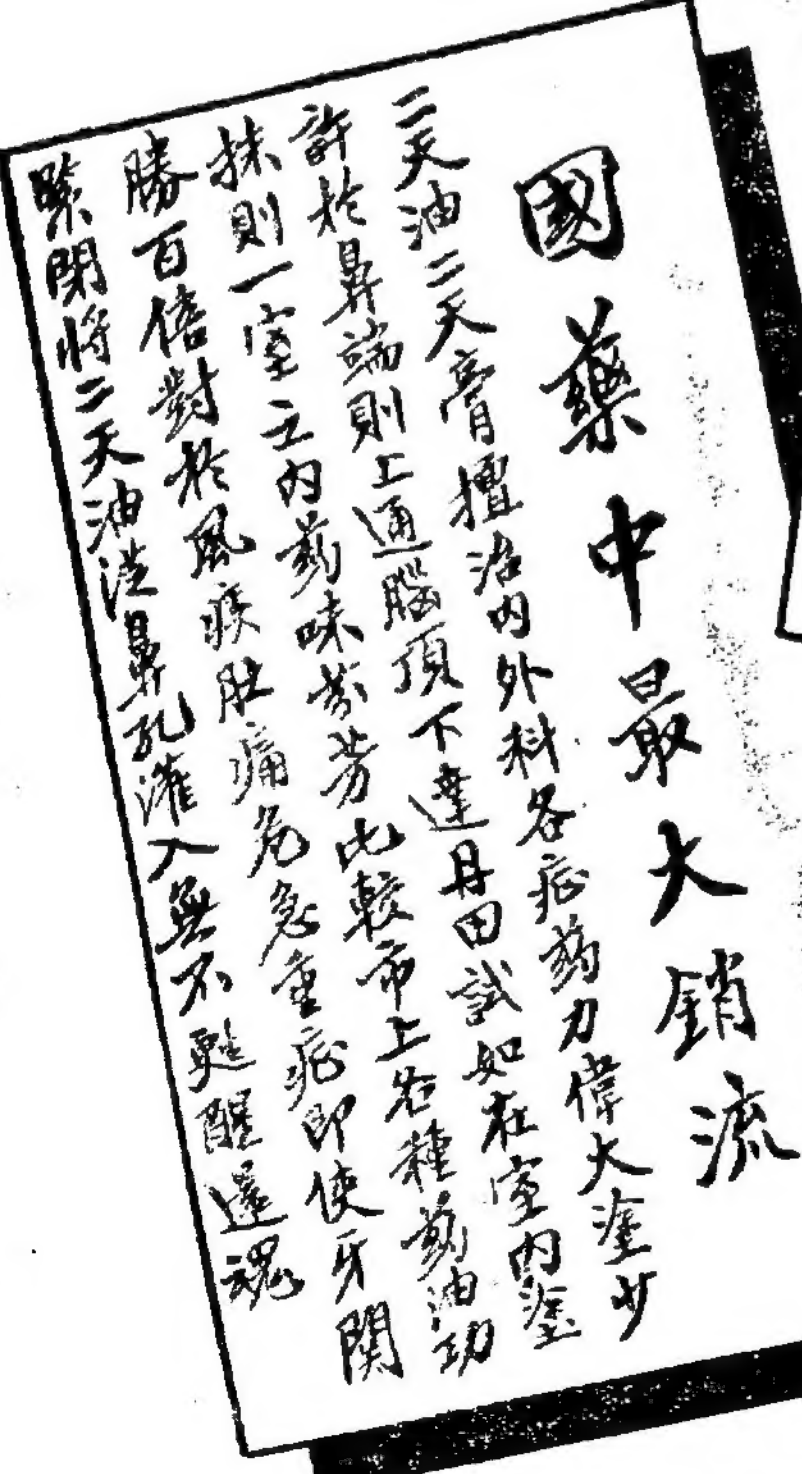 國藥中最大銷流
二天油二天膏擅治內外科各症藥力偉大塗少
許於鼻端則上通腦頂下達丹田試如在室內塗
抹則一室之內药味芬芳比較市上各種药油功
勝百倍對於風痰肚痛危急重症即使牙関
緊閉將二天油從鼻孔灌入無不甦醒還魂